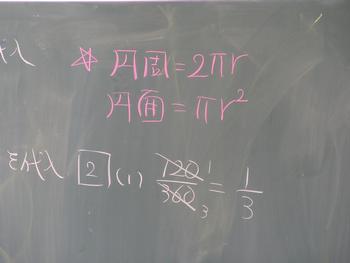 代入 ☆ 円周=2πr
円面=πr²
を代入 2 (1) 120/360 1/3 = 1/3